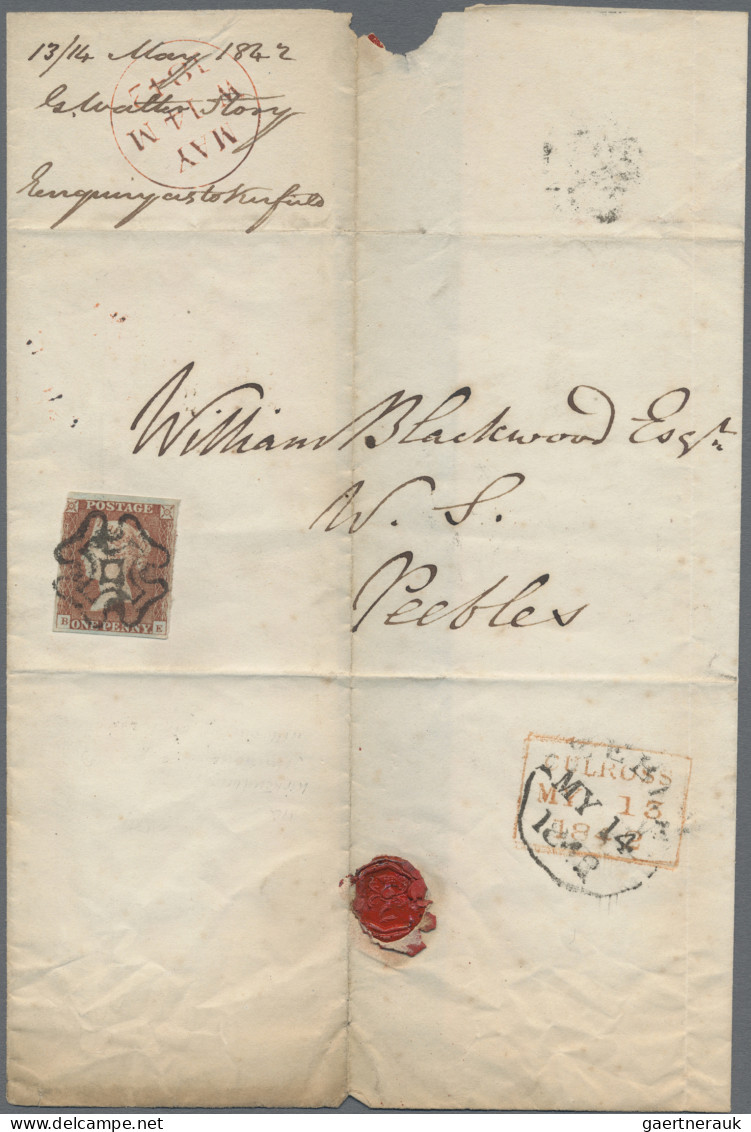 13/14 May 1842
G. Walter Story
Enquiry as to
MAY
14 M
1842
William Blackwood Esqr
W. S.
Peebles
POSTAGE
ONE PENNY
B E
CULROSS
MY 13
1842
MY 14
1842
gaertnerauk